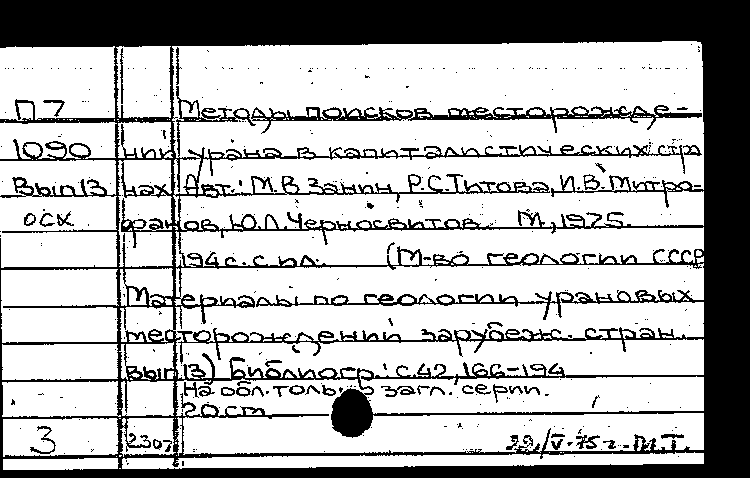 П7 Методы поисков месторожде-
1090 ний урана в капиталистических стра
Вып13 нах Авт.: М.В Занин, Р.С.Титова, И.В. Митро-
осх фанов, Ю.Л.Черносвитов. М., 1975.
194с. с ил. (М-во геологии СССР
Материалы по геологии урановых
месторождений зарубеж. стран.
Вып13) Библиогр.: с.42, 166-194
На обл. только загл. серии.
20см.
3 2307 29/V-75 г. М.Т.